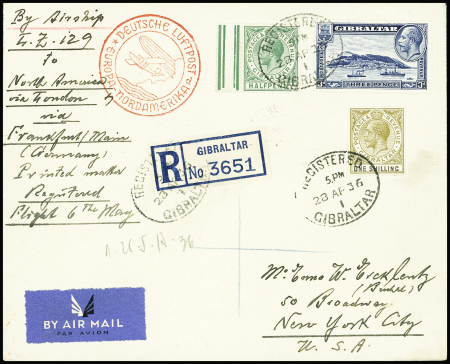 By Airship
L.Z. 129
to
North America
via London &
via
Frankfurt/Main
(Germany)
Printed matter
Registered
Flight 6th May
DEUTSCHE LUFTPOST
EUROPA-NORDAMERIKA
HALFPENNY
REGISTERED
28 AP 36
GIBRALTAR
GIBRALTAR
THREE PENCE
ONE SHILLING
REGISTERED
5. PM
28 AP 36
GIBRALTAR
REGISTERED
GIBRALTAR
R
GIBRALTAR
No 3651
U.S.A-36
BY AIR MAIL
PAR AVION
W.
50 Broadway
New York City
U.S.A.